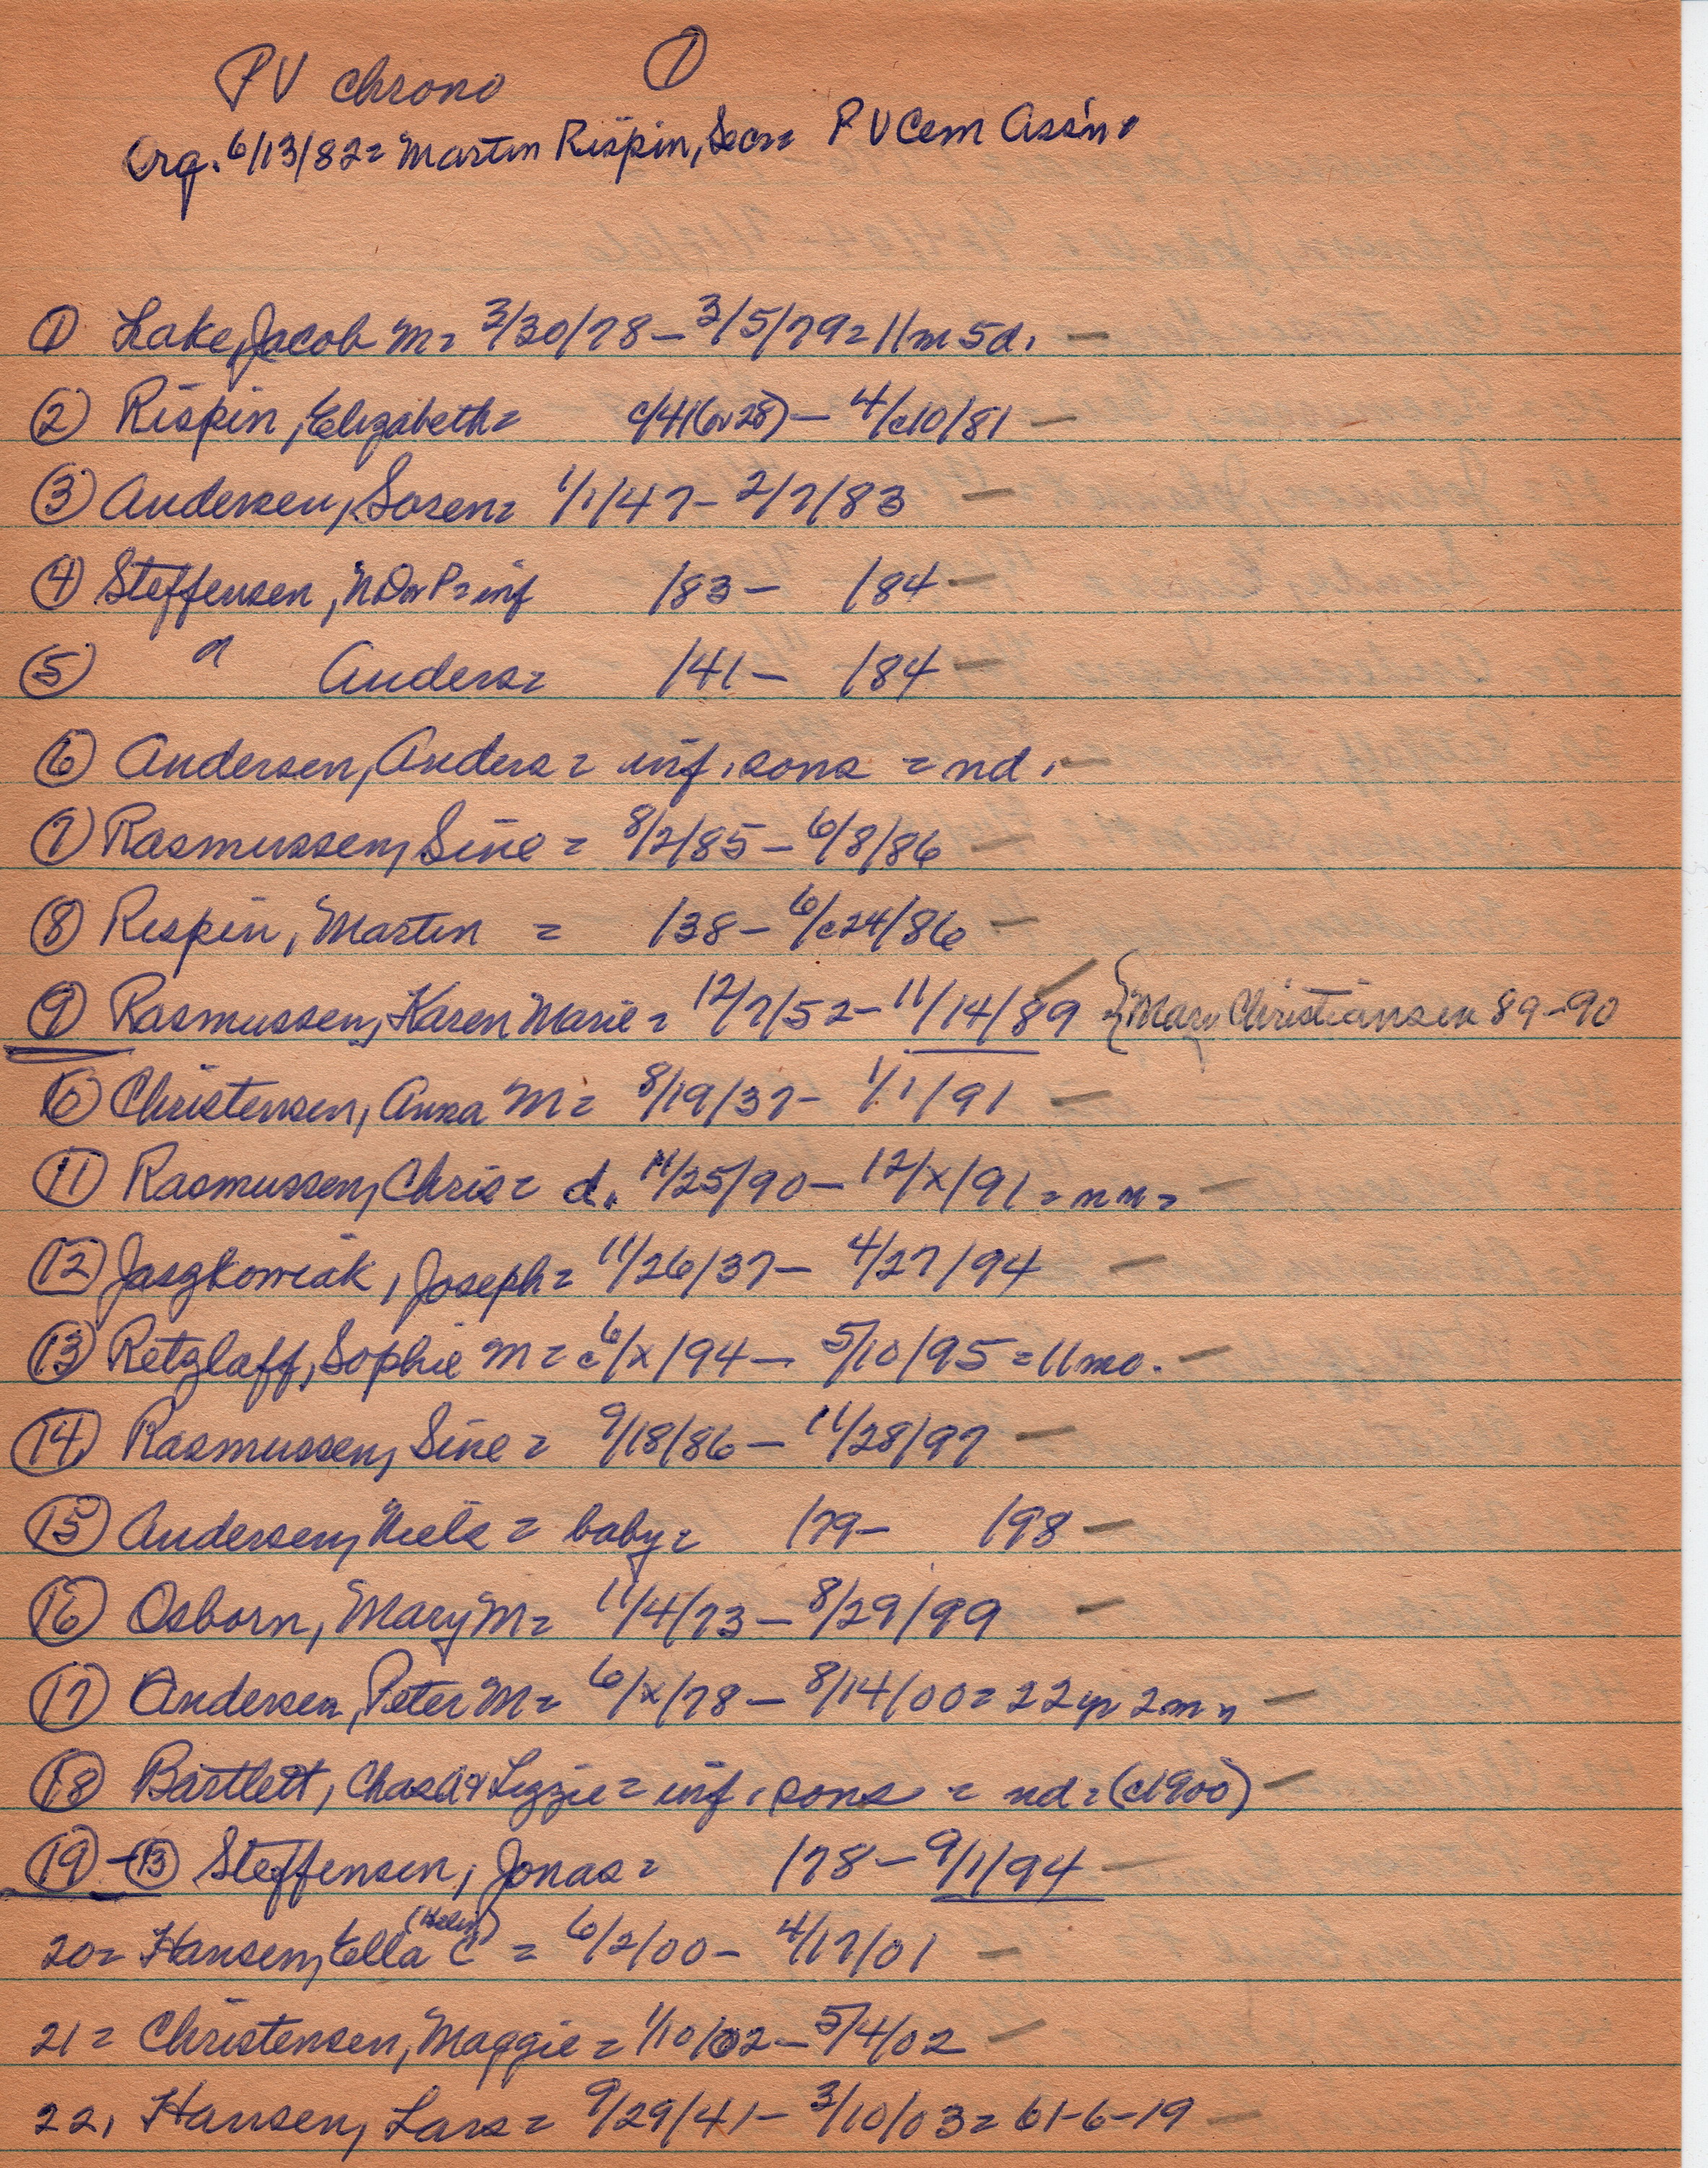 PV Chrono ①
Org. 6/13/82= Martin Rispin, Sec= PV Cem Ass'n.
① Lake, Jacob M= 3/30/78 – 3/5/79= 11m 5d. –
② Rispin, Elizabeth= c/41(or 28) – 4/c10/81 –
③ Andersen, Soren= 1/1/47 – 2/7/83 –
④ Steffensen, N D or P= inf /83 – /84 –
⑤ " Anders= /41 – /84 –
⑥ Andersen, Anders= inf. sons = nd. –
⑦ Rasmussen, Sine = 8/2/85 – 6/8/86 –
⑧ Rispin, Martin = /38 – 6/c24/86 –
⑨ Rasmussen, Karen Marie= 12/7/52 – 11/14/89 {Mary Christiansen 89-90
⑩ Christensen, Anna M= 8/19/37 – 1/1/91 –
⑪ Rasmussen, Chris= d. 11/25/90 – 12/x/91 = nn= –
⑫ Jaszkowiak, Joseph= 11/26/37 – 4/27/94 –
⑬ Retzlaff, Sophie M= c6/x/94 – 5/10/95 = 11mo. –
⑭ Rasmussen, Sine = 9/18/86 – 11/28/97 –
⑮ Andersen, Niels = baby= /79 – /98 –
⑯ Osborn, Mary M= 11/4/73 – 8/29/99 –
⑰ Andersen, Peter M= 6/x/78 – 8/14/00= 22yr 2m –
⑱ Bartlett, Chas A & Lizzie= inf. sons = nd= (c1900) –
⑲ – ⑬ Steffensen, Jonas= /78 – 9/1/94 –
20= Hansen, Ella C = 6/2/00 – 4/17/01 –
21= Christensen, Maggie= 1/10/02 – 5/4/02 –
22. Hansen, Lars= 9/29/41 – 3/10/03= 61-6-19 –